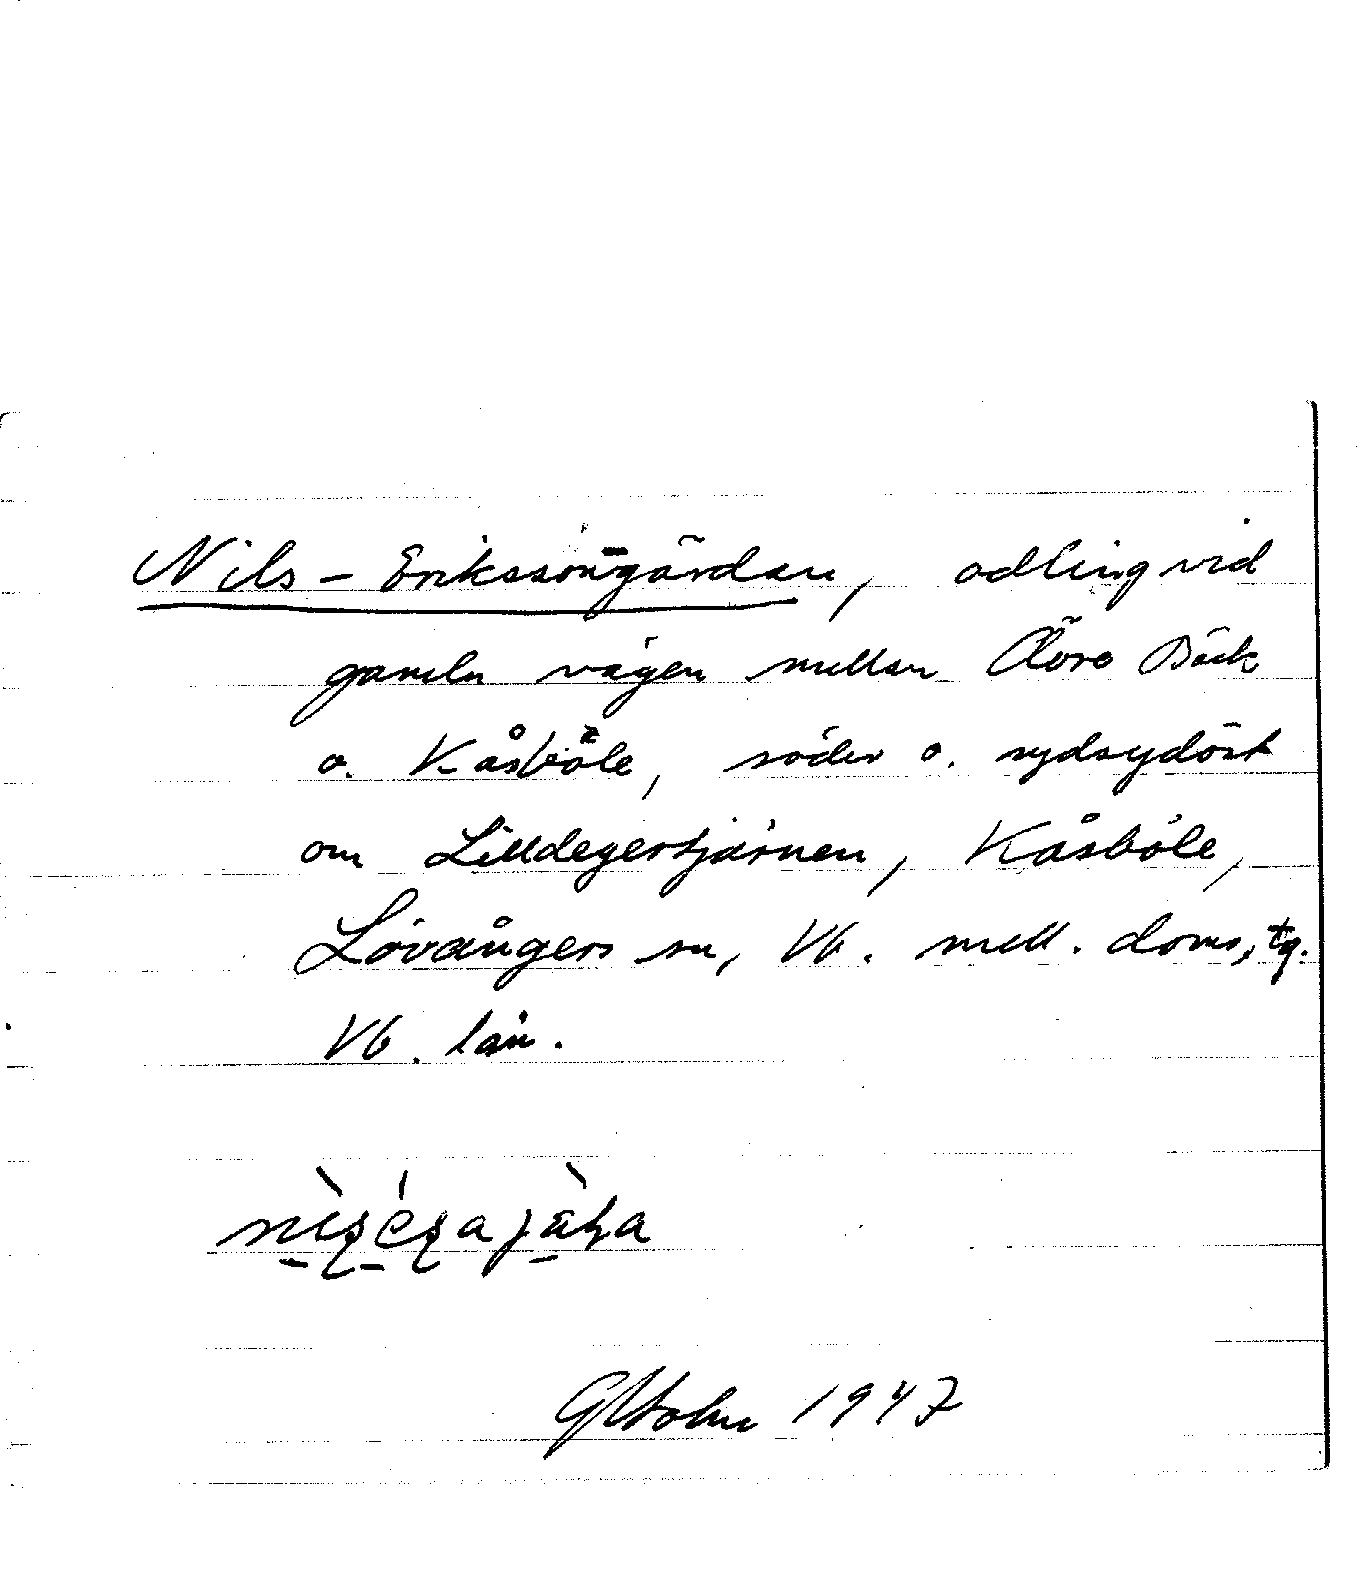 Nils-Erikssongärdan, odling vid
gamla vägen mellan Övre Bäck
o. Kåsböle, söder o. sydsydöst
om Lilldegertjärnen, Kåsböle,
Lövångers sn, Vb. mell. doms. tg.
Vb. län.
GHolm 1947